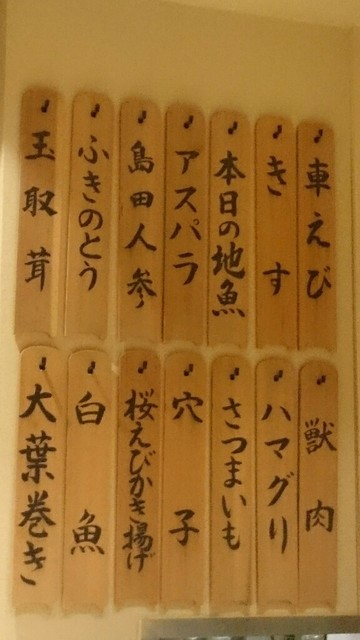 車えび
きす
本日の地魚
アスパラ
島田人参
ふきのとう
玉取茸
獣肉
ハマグリ
さつまいも
穴子
桜えびかき揚げ
白魚
大葉巻き